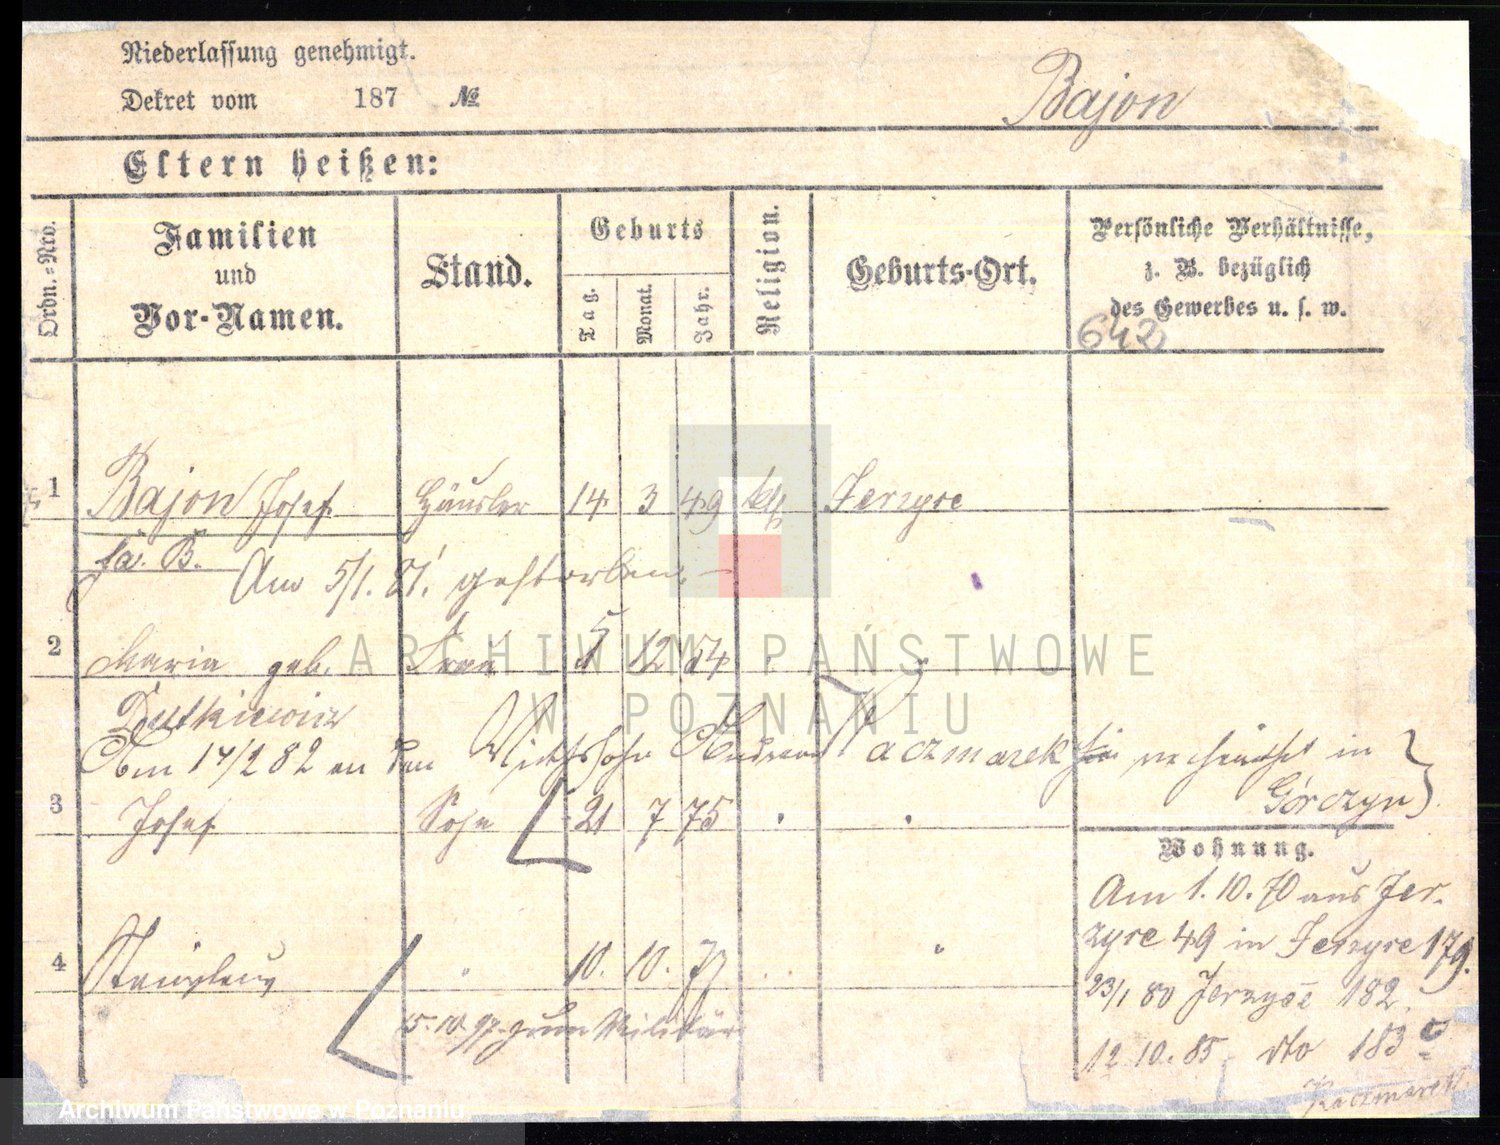 Niederlassung genehmigt.
Dekret vom 187 №
Bajon
Eltern heißen:
Ordn.=Nro.
Familien und Vor-Namen.
Stand.
Geburts
Tag. Monat. Jahr.
Religion.
Geburts-Ort.
Persönliche Verhältnisse,
z. B. bezüglich
des Gewerbes u. s. w.
642
1 Bajon Josef Häusler 14 3 49 kth Jerzyce
fa. B. Am 5/1. 81. gestorben
2 Maria geb. Frau 5 12 54
Dutkiewicz
Am 14/2 82 an den Wirthssohn Kaczmarek verheirathet in
Górczyn
3 Josef Sohn 21 7 75
Wohnung.
Am 1. 10. 70 aus Jer-
zyce 49 in Jerzyce 179.
4 Stanislaus " 10. 10. 77
23/1 80 Jerzyce 182.
15. 10. 97. zum Militär
12. 10. 85 dto 183
Kaczmarek
ARCHIWUM PAŃSTWOWE
W POZNANIU
Archiwum Państwowe w Poznaniu